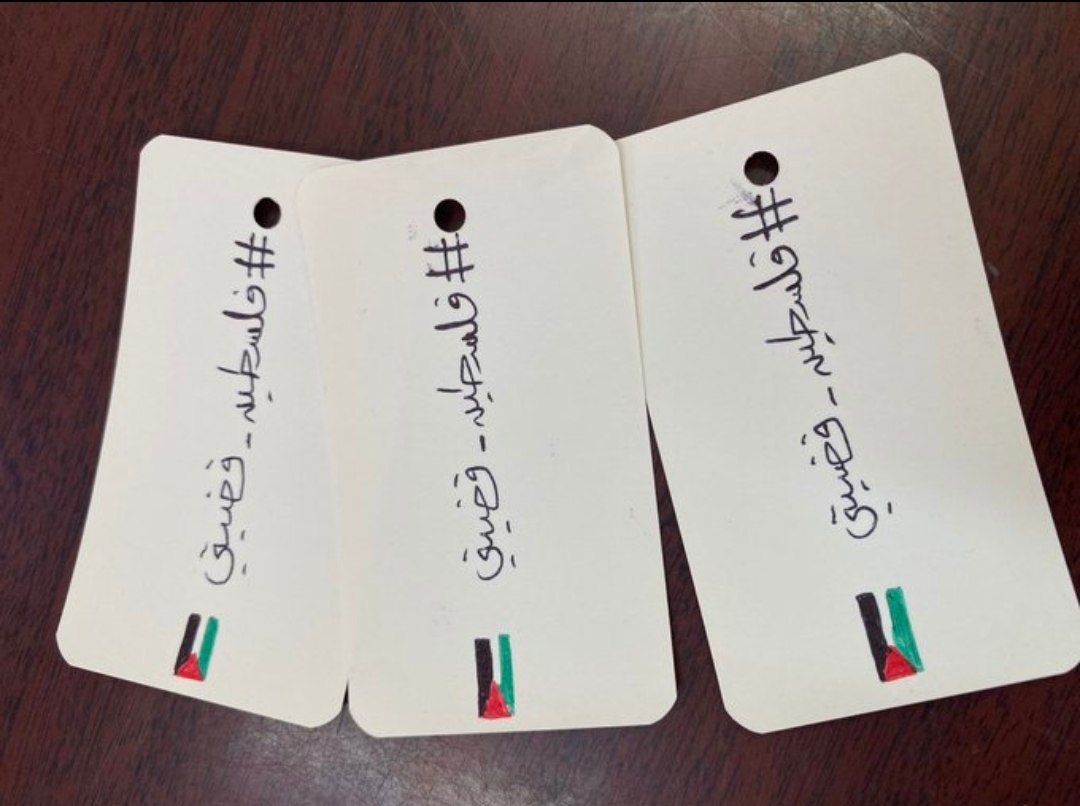 #فلسطين_قضيتي
#فلسطين_قضيتي
#فلسطين_قضيتي